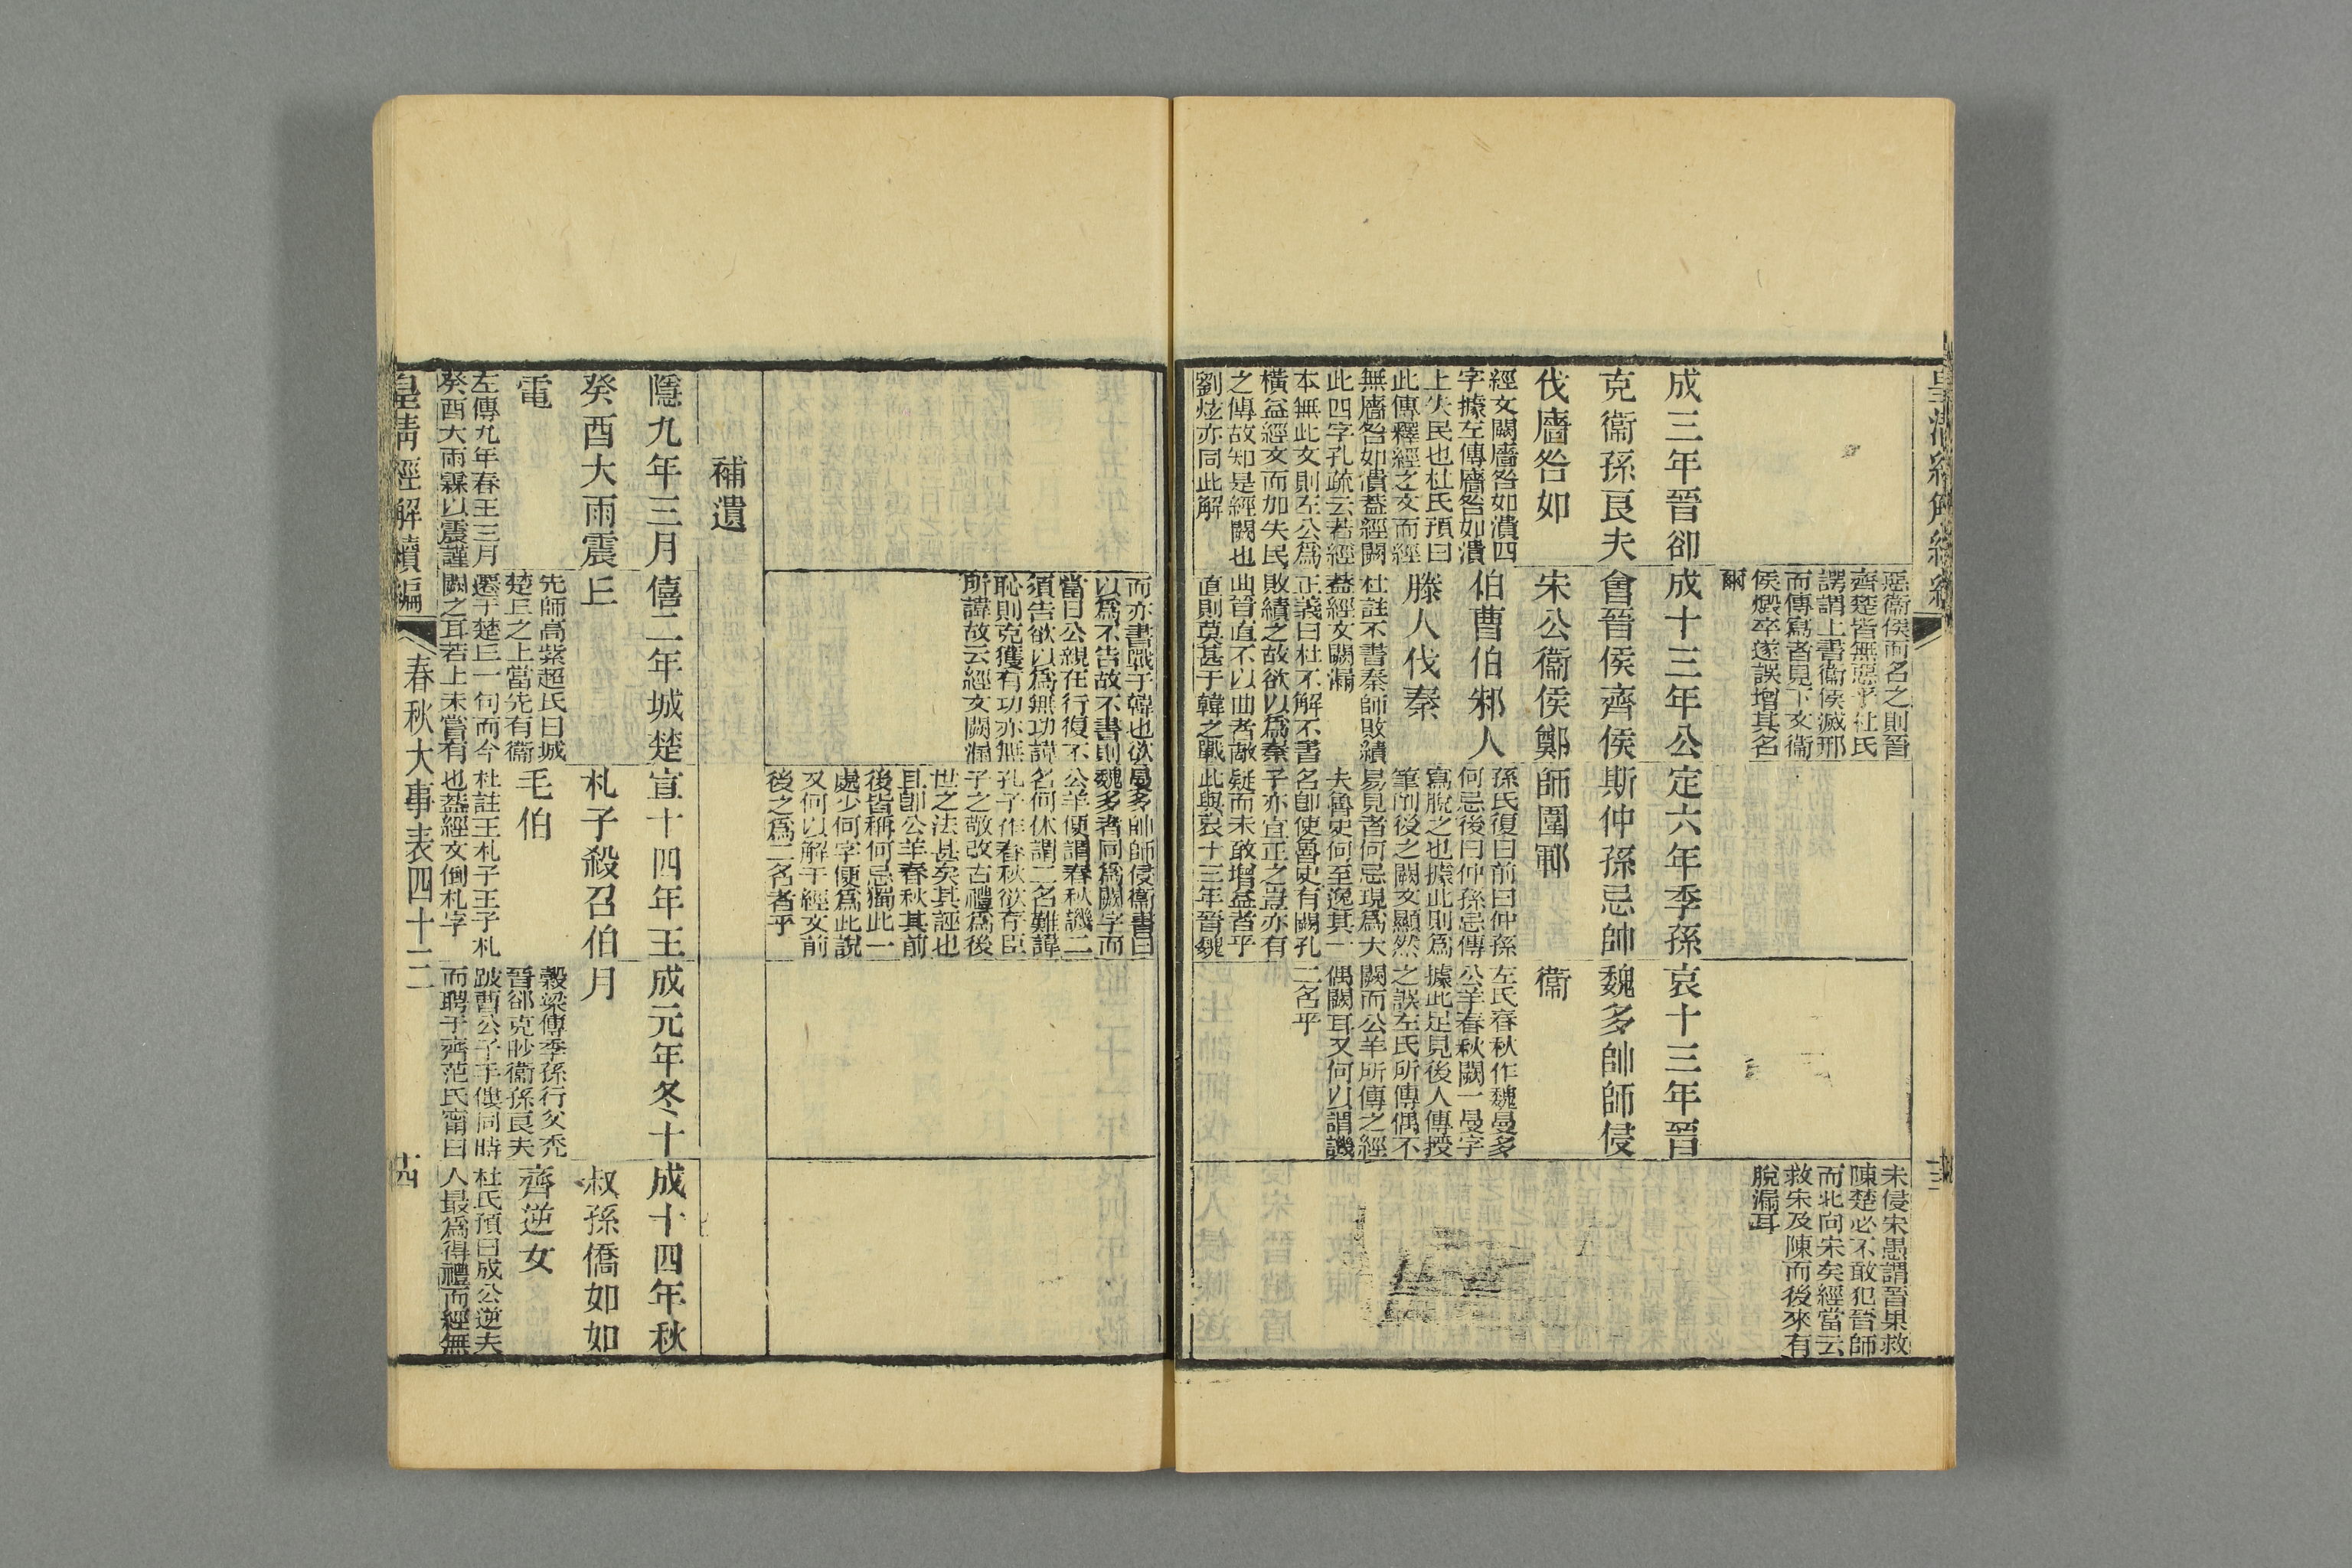 皇清經解續編
惡衞侯而名之則晉
齊楚皆無惡乎杜氏
謂上書衞侯滅邢
而傳寫者見下文衞
侯燬卒遂誤增其名
爾
未侵宋愚謂晉果救
陳楚必不敢犯晉師
而北向宋矣經當云
救宋及陳而後來有
脫漏耳
成三年晉卻
克衞孫良夫
伐廧咎如
經文闕廧咎如潰四
字據左傳廧咎如潰
上失民也杜氏預曰
此傳釋經之文而經
無廧咎如潰蓋經闕
此四字孔疏云若經
本無此文則左公爲
橫益經文而加失民
之傳故知是經闕也
劉炫亦同此解
成十三年公
會晉侯齊侯
宋公衞侯鄭
伯曹伯邾人
滕人伐秦
杜註不書秦師敗績
蓋經文闕漏
正義曰杜不解不書
敗績之故欲以爲秦
曲晉直不以曲者敵
直則莫甚于韓之戰
定六年季孫
斯仲孫忌帥
師圍鄆
孫氏復曰前曰仲孫
何忌後曰仲孫忌傳
寫脫之也據此則爲
筆削後之闕文顯然
易見者何忌現爲大
夫魯史何至逸其一
名卽使魯史有闕孔
子亦宜正之豈亦有
疑而未敢增益者乎
此與哀十三年晉魏
哀十三年晉
魏多帥師侵
衞
左氏春秋作魏曼多
公羊春秋闕一曼字
據此足見後人傳授
之誤左氏所傳偶不
闕而公羊所傳之經
偶闕耳又何以謂譏
二名乎
而亦書戰于韓也欲
以爲不告故不書則
當日公親在行復不
須告欲以爲無功諱
恥則克獲有功亦無
所諱故云經文闕漏
曼多帥師侵衞書曰
魏多者同爲闕字而
公羊便謂春秋譏二
名何休謂二名難諱
孔子作春秋欲存臣
子之敬改古禮爲後
世之法甚矣其誣也
且卽公羊春秋其前
後皆稱何忌獨此一
處少何字便爲此說
又何以解于經文前
後之爲二名者乎
補遺
隱九年三月
癸酉大雨震
電
左傳九年春王三月
癸酉大雨霖以震謹
僖二年城楚
丘
先師高紫超氏曰城
楚丘之上當先有衞
遷于楚丘一句而今
闕之耳若上未嘗有
宣十四年王
札子殺召伯
毛伯
杜註王札子王子札
也蓋經文倒札字
成元年冬十
月
穀梁傳季孫行父禿
晉郤克眇衞孫良夫
跛曹公子手僂同時
而聘于齊范氏甯曰
成十四年秋
叔孫僑如如
齊逆女
杜氏預曰成公逆夫
人最爲得禮而經無
皇清經解續編
春秋大事表四十三